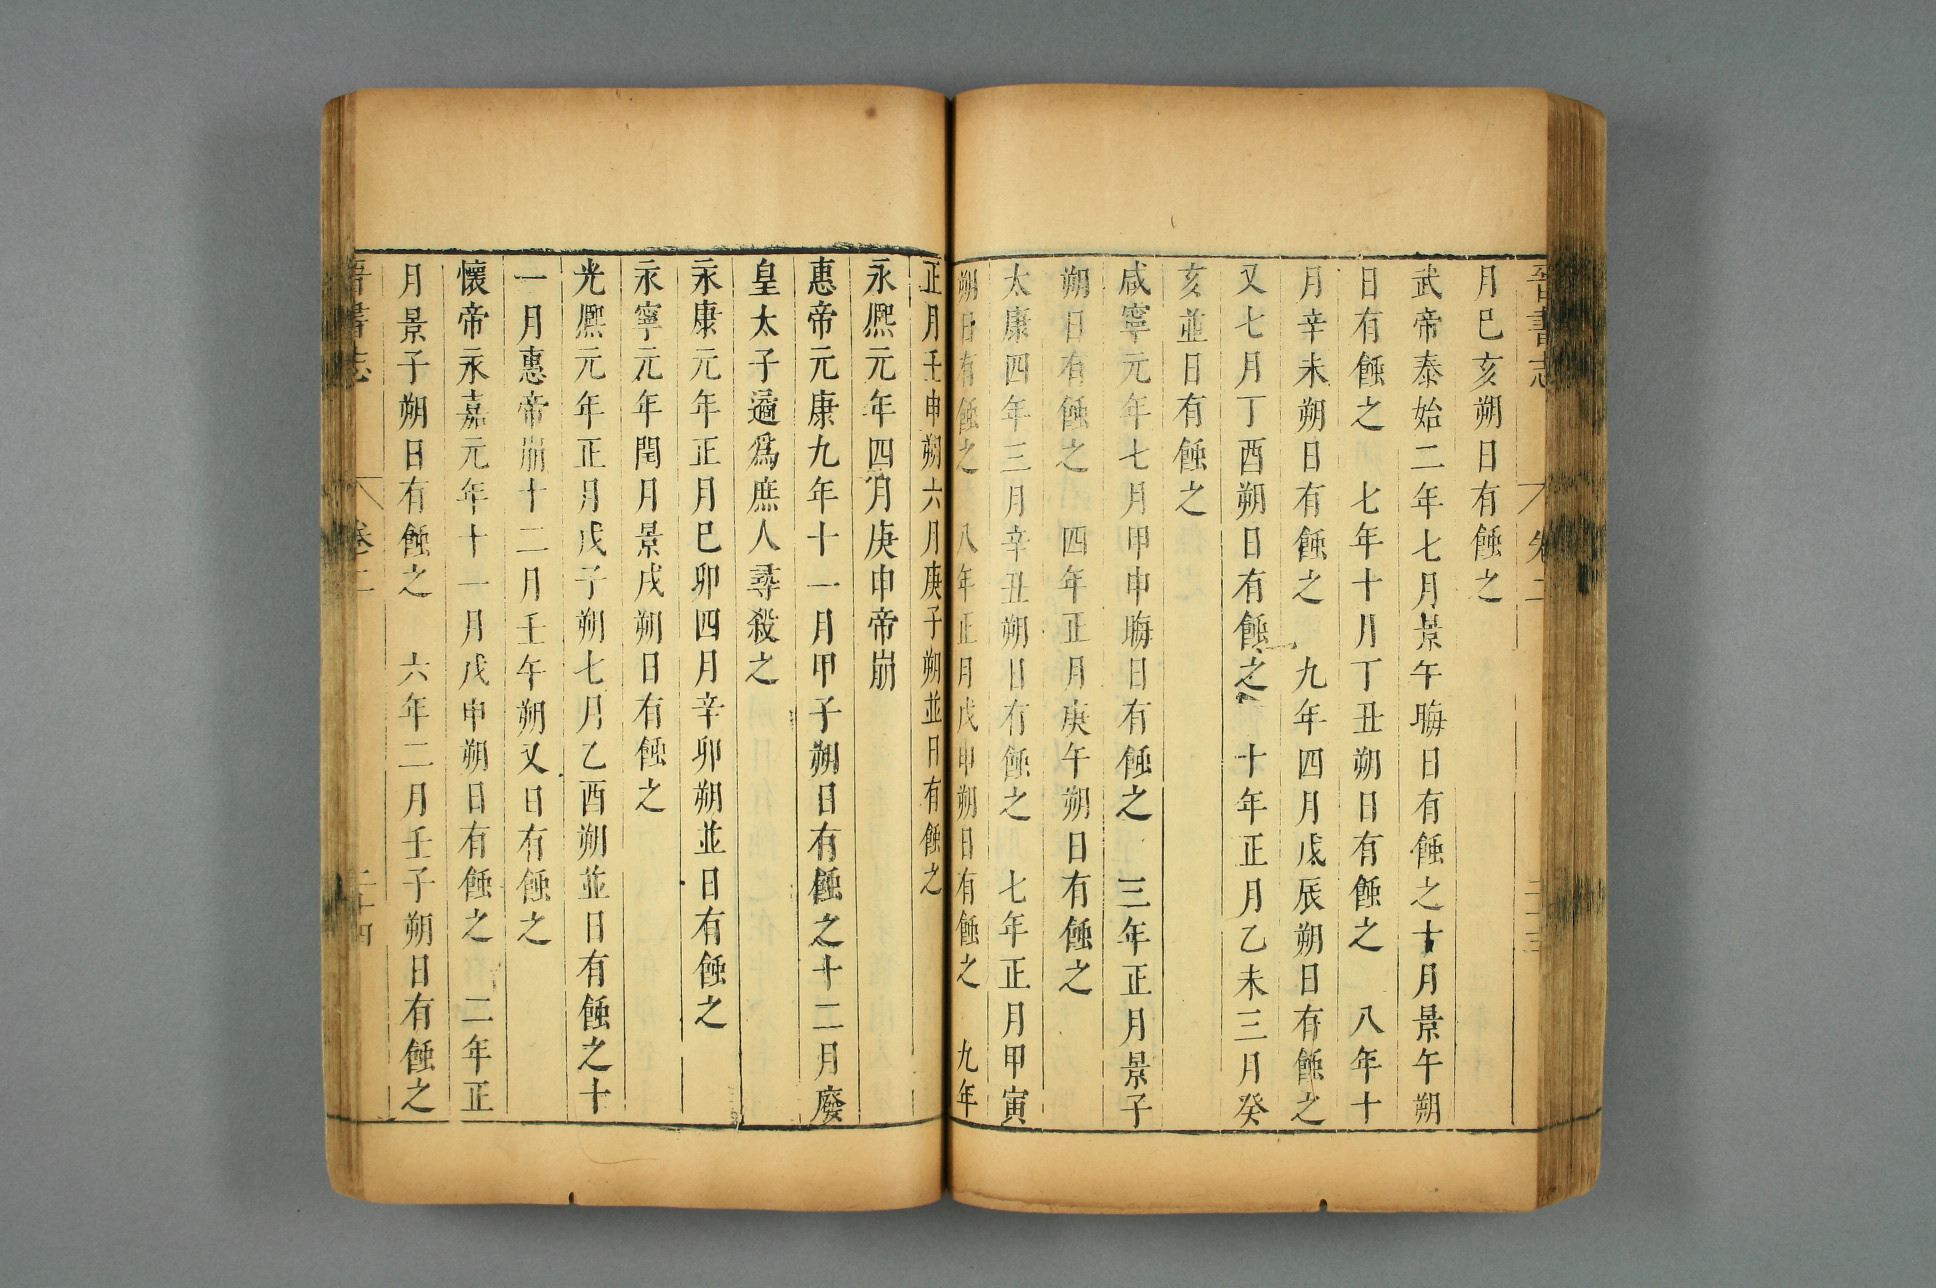 晉書志 卷二 二十三
月巳亥朔日有蝕之
武帝泰始二年七月景午晦日有蝕之十月景午朔
日有蝕之 七年十月丁丑朔日有蝕之 八年十
月辛未朔日有蝕之 九年四月戊辰朔日有蝕之
又七月丁酉朔日有蝕之 十年正月乙未三月癸
亥並日有蝕之
咸寧元年七月甲申晦日有蝕之 三年正月景子
朔日有蝕之 四年正月庚午朔日有蝕之
太康四年三月辛丑朔日有蝕之 七年正月甲寅
朔日有蝕之 八年正月戊申朔日有蝕之 九年
正月壬申朔六月庚子朔並日有蝕之
永熈元年四月庚申帝崩
惠帝元康九年十一月甲子朔日有蝕之十二月廢
皇太子遹爲庶人尋殺之
永康元年正月巳卯四月辛卯朔並日有蝕之
永寧元年閏月景戌朔日有蝕之
光熈元年正月戊子朔七月乙酉朔並日有蝕之十
一月惠帝崩十二月壬午朔又日有蝕之
懷帝永嘉元年十一月戊申朔日有蝕之 二年正
月景子朔日有蝕之 六年二月壬子朔日有蝕之
晉書志 卷二 二十四